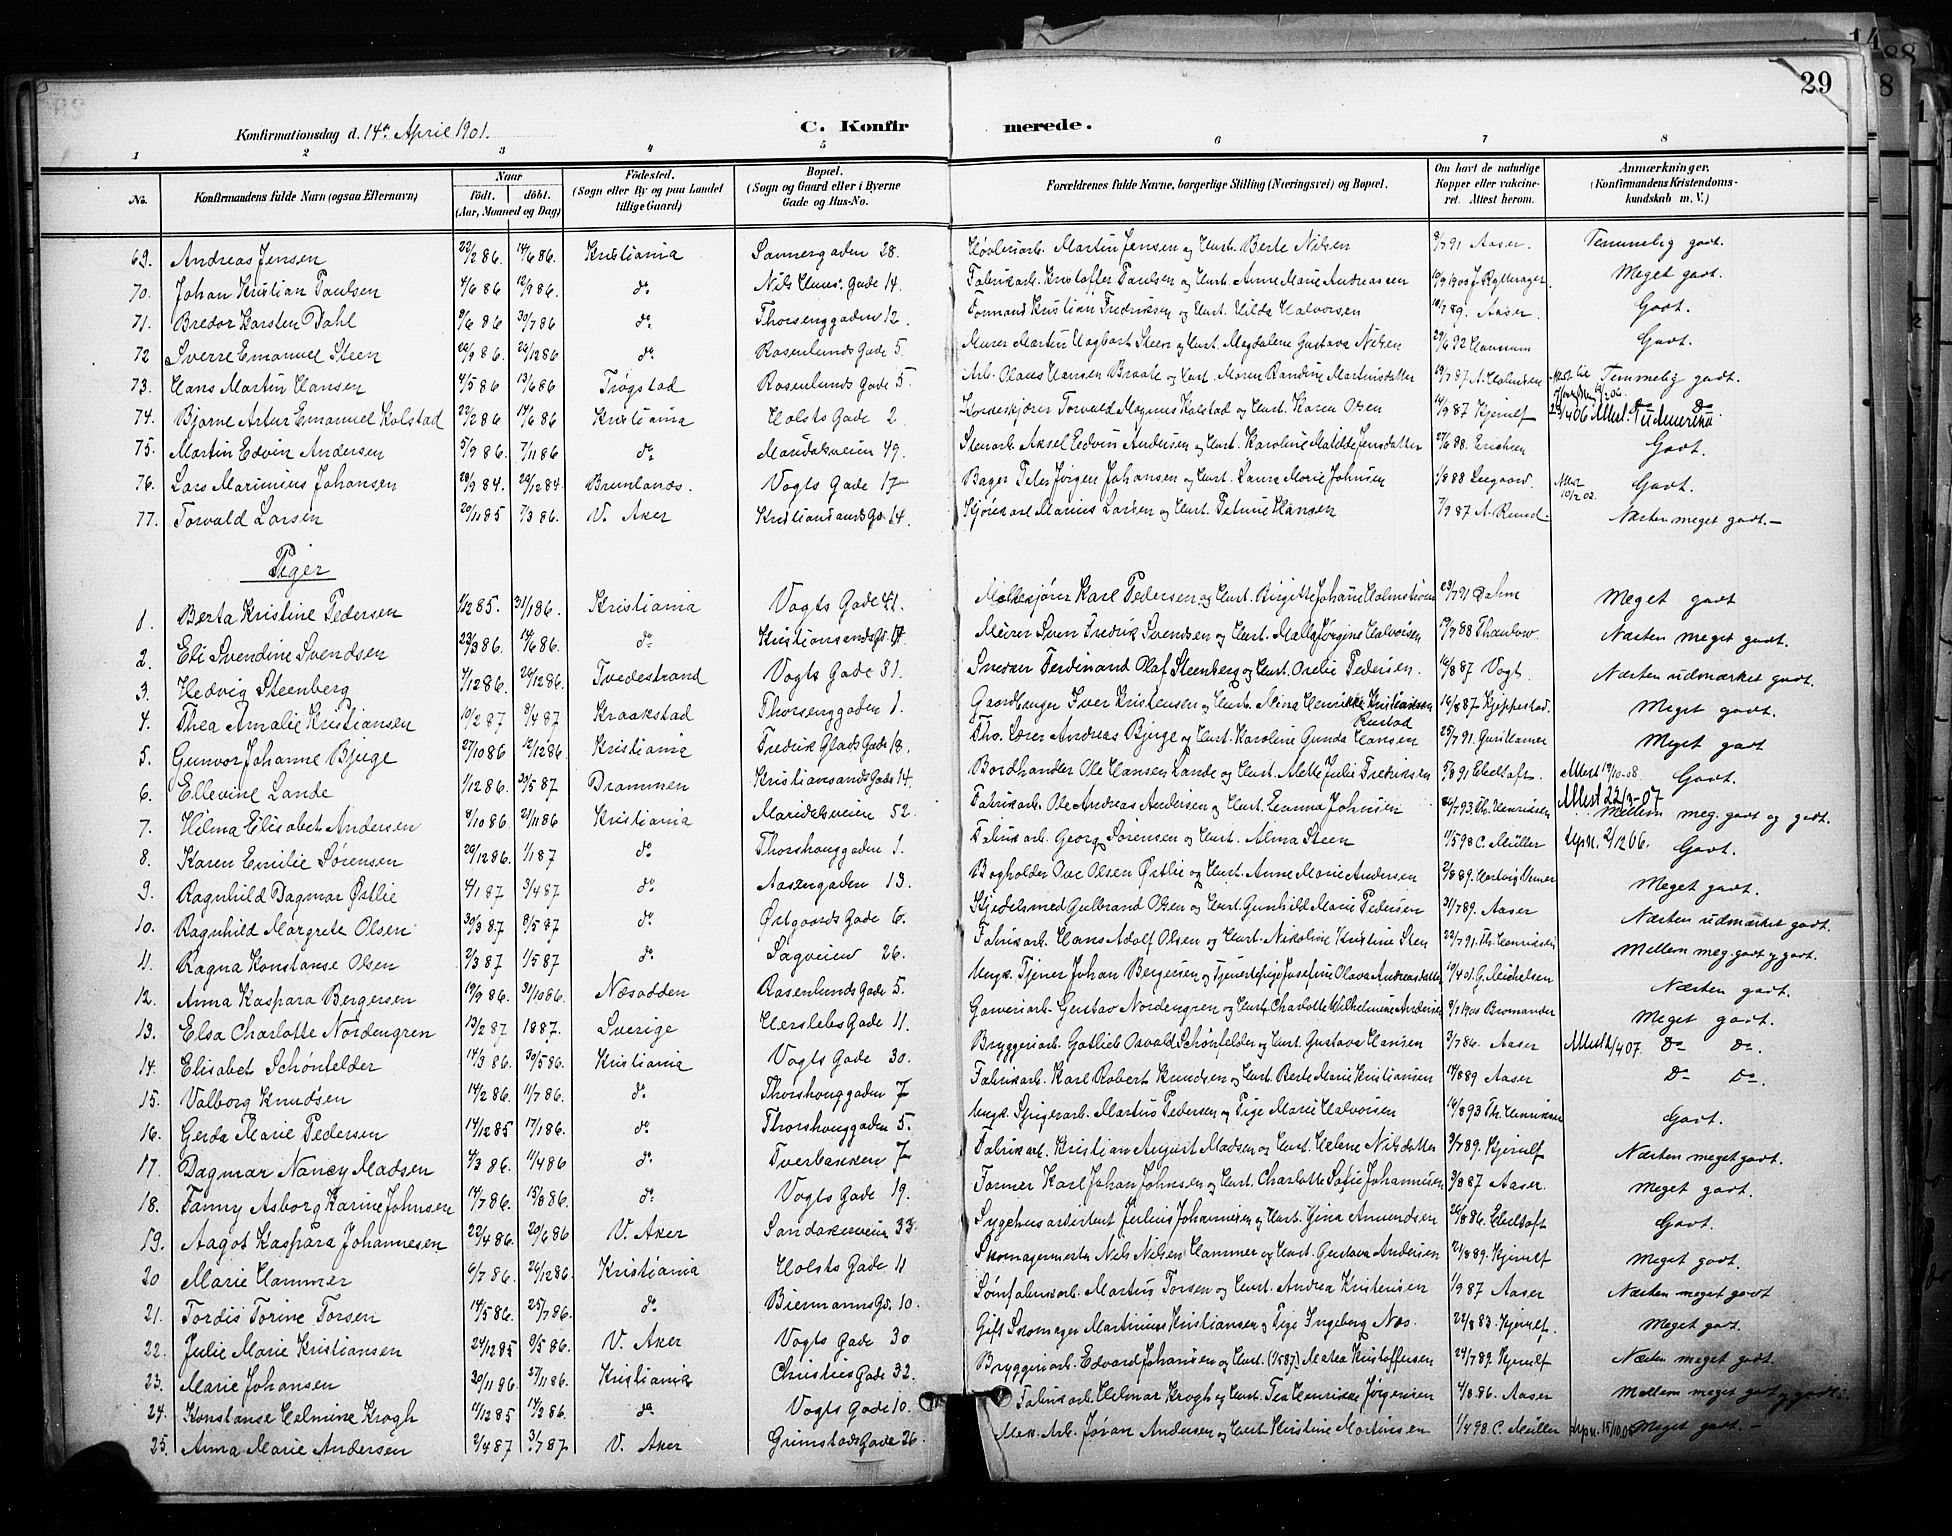 29
Konfirmationsdag d. 14de April 1901. C. Konfirmerede.
1 2 3 4 5 6 7 8
No. Konfirmandens fulde Navn (ogsaa Efternavn) Naar født. døbt. (Aar, Maaned og Dag) Fødested. (Sogn eller By og paa Landet tillige Gaard) Bopæl. (Sogn og Gaard eller i Byerne Gade og Hus-No. Forældrenes fulde Navne, borgerlige Stilling (Næringsvei) og Bopæl. Om havt de naturlige Kopper eller vakcineret. Attest herom. Anmærkninger. (Konfirmandens Kristendomskundskab m. V.)
69. Andreas Jensen 22/2 86. 14/6 86. Kristiania Sannergaden 28. Høvleriarb. Martin Jensen og Hust. Berte Nilsen 8/7 91 Aaser. Temmelig godt.
70. Johan Kristian Paulsen 4/6 86 12/9 86. do Nils Huus' Gade 14. Fabrikarb. Kristoffer Paulsen og Hust. Anne Marie Andreassen Meget godt.
71. Bredor Karsten Dahl 9/6 86 30/7 86 do Thorsenggaden 12. Formand Kristian Fredriksen og Hust. Hilda Halvorsen 10/7 89. Aaser. Godt.
72 Sverre Emanuel Steen 20/9 86. 26/12 86 do Rosenlunds Gade 5. Murer Martin Hagbart Steen og Hust. Magdalene Gustava Nilsen 29/6 92 Godt.
73. Hans Martin Hansen 4/5 86 13/6 86 Trøgstad Rosenlunds Gade 5. Arb. Olaus Hansen Braate og Hust. Maren Randine Martinsdatter 19/7 87 Temmelig godt.
74. Bjarne Artur Emanuel Kolstad 22/2 86 14/6 86 Kristiania Holsts Gade 2 Torvald Magnus Kolstad og Hust. Karen Olsen 14/9 87 Kjerulf 23/4 06 Attest Do
75. Martin Edvin Andersen 5/9 86. 7/11 86 do Maridalsveien 49. Stenarb. Aksel Edvin Andersen og Hust. Karoline Matilde Jensdatter 27/6 88. Erichsen Godt.
76. Lars Marinius Johansen 28/9 84. 26/12 84. Brunlanes. Vogts Gade 17 Bager Peter Jørgen Johansen og Hust. Laura Marie Johnsen 1/8 88 Attest 10/2 02. Godt.
77. Torvald Larsen 20/11 85 7/3 86. V. Aker Kristiansands G. 14. Kjørekarl Marius Larsen og Hust. Petrine Hansen 7/9 87 Næsten meget godt.-
Piger
1. Berta Kristine Pedersen 1/12 85. 31/1 86. Kristiania Vogts Gade 41. Melkekjører Karl Pedersen og Hust. Birgitte Johane Holmstrøm 29/7 91 Dahm Meget godt
2. Eli Svendine Svendsen 23/3 86. 14/6 86. do Kristiansands G. Murer Sven Fredrik Svendsen og Hust. Malla Jørgine Halvorsen 19/9 88 Thaulow. Næsten meget godt.
3. Hedvig Steenberg 7/12 86. 26/12 86. Tvedestrand Vogts Gade 31. Snedker Ferdinand Olaf Steenberg og Hust. Orelie Pedersen. 16/8 87 Vogt Næsten udmærket godt.
4. Thea Amalie Kristiansen 10/2 87 8/4 87 Kraakstad Thorsenggaden 1. Gaardbruger Iver Kristensen og Hust. Mina Henrikke Kristiansen Rustad 14/8 87 Kjeppestad. Meget godt.
5. Gunvor Johanne Bjerge 27/10 86 12/12 86 Kristiania Fredrik Glads Gade 18. Fho. Lærer Andreas Bjerge og Hust. Karoline Gunda Hansen 25/7 91. Meget godt
6. Ellevine Lande 1/12 86. 30/5 87 Drammen Kristiansands Gade 14 Bordhandler Ole Hansen Lande og Hust. Mette Julie Fredriksen 5/8 91 Ebeltoft. Attest 19/10-08. Godt.
7. Hilma Elisabet Andersen 8/10 86 21/11 86 Kristiania Maridalsveien 52. Fabrikarb. Ole Andreas Andersen og Hust. Emma Johnsen 26/7 93. Th. Henriksen Attest 22/3-07 Mellem meg. godt og godt.
8. Karen Emilie Sørensen 20/12 86. 1/1 87 do Thorshauggaden 1. Fabrikarb. Georg Sørensen og Hust. Alma Steen 11/5 98 C. Müller 2/12 06. Godt.
9. Ragnhild Dagmar Østlie 4/1 87 3/4 87 do Aasengaden 13. Bogholder Ove Olsen Østlie og Hust. Anne Marie Andersen 2/8 89. Meget godt.
10. Ragnhild Margrete Olsen 30/3 87 8/5 87 do Østgaards Gade 6. Gjedelsmed Gulbrand Olsen og Hust. Gunhild Marie Pedersen 31/7 89. Aaser Næsten udmærket godt.
11. Ragna Konstanse Olsen 2/3 87 1/5 87 do Sagveien 26. Fabrikarb. Hans Adolf Olsen og Hust. Nikoline Kristine Sten 22/7 91. Th. Henriksen Mellem meg. godt og godt.
12. Anna Kaspara Bergersen 19/9 86. 31/10 86. Næsodden Rosenlunds Gade 5. Ungk. Tjener Johan Bergersen og Tjenestepige Josefine Olava Andreasdatter 19/4 01. G. Michelsen Næsten godt.
13. Elsa Charlotte Nordengren 13/2 87 1887. Sverige Herslebs Gade 11. Garveriarb. Gustav Nordengren og Hust. Charlotte Wilhelmine Andersen Bromander Meget godt.
14. Elisabet Schönfelder 14/3 86. 30/5 86. Kristiania Vogts Gade 30. Bryggeriarb. Gotlieb Osvald Schønfelder og Hust. Gustava Hansen 3/7 86. Aaser Attest 2/4 07. Do Do.
15. Valborg Knudsen 14/2 86 11/7 86. do Thorshauggaden 7 Fabrikarb. Karl Robert Knudsen og Hust. Berte Marie Kristiansen 14/8 89 Aaser Do Do.
16. Gerda Marie Pedersen 14/12 85 17/1 86. do Thorshauggaden 5. Ungk. Spigerarb. Martius Pedersen og Pige Marie Halvorsen 16/8 93 Th. Henriksen Godt.
17. Dagmar Nancy Madsen 4/3 86. 11/4 86 do Tverbakken 7 Fabrikarb. Kristian August Madsen og Hust. Helene Nilsdatter 3/7 89. Kjerulf Næsten meget godt.
18. Fanny Asborg Karine Johnsen 14/7 86. 15/8 86. do Vogts Gade 19. Former Karl Johan Johnsen og Hust. Charlotte Sofie Johannesen 3/8 87 Aaser. Meget godt.
19. Aagot Kaspara Johannesen 22/4 86. 20/6 86 V. Aker Sandakerveien 33. Sygehusassistent Julius Johannesen og Hust. Gina Amundsen 26/8 86. Ebeltoft Godt.
20 Marie Hammer 6/7 86. 26/12 86. Kristiania Holsts Gade 11 Skomagermester Nils Nilsen Hammer og Hust. Gustava Andersen 21/8 89. Kjerulf Meget godt.
21. Tordis Torine Torsen 14/5 86. 25/7 86. do Biermanns G. 10. Sømfabrikarb. Martius Torsen og Hust. Andrea Kristensen 1/9 87 Aaser Næsten meget godt
22. Julie Marie Kristiansen 24/12 85 9/5 86. V. Aker Vogts Gade 30 Gift Skomager Martinius Kristiansen og Pige Ingeborg Næs. 22/8 83. Kjerulf. Meget godt.
23. Marie Johansen 20/11 86. 27/11 86. Kristiania Christies Gade 32. Bryggeriarb. Edvard Johansen og Hust. (1/5 87) Matea Kristoffersen 24/7 89. Kjerulf Næsten meget godt.
24. Konstanse Helmine Krogh 11/12 85 14/2 86. do Vogts Gade 10. Fabrikarb. Helmar Krogh og Hust. Tea Henrikke Jørgensen 4/8 86. Aaser Mellem meget godt og godt.
25. Anna Marie Andersen 2/4 87 3/7 87 V. Aker Grimstads Gade 26. Mek. Arb. Johan Andersen og Hust. Kristine Martinsen 1/4 98 C. Müller Meget godt.-